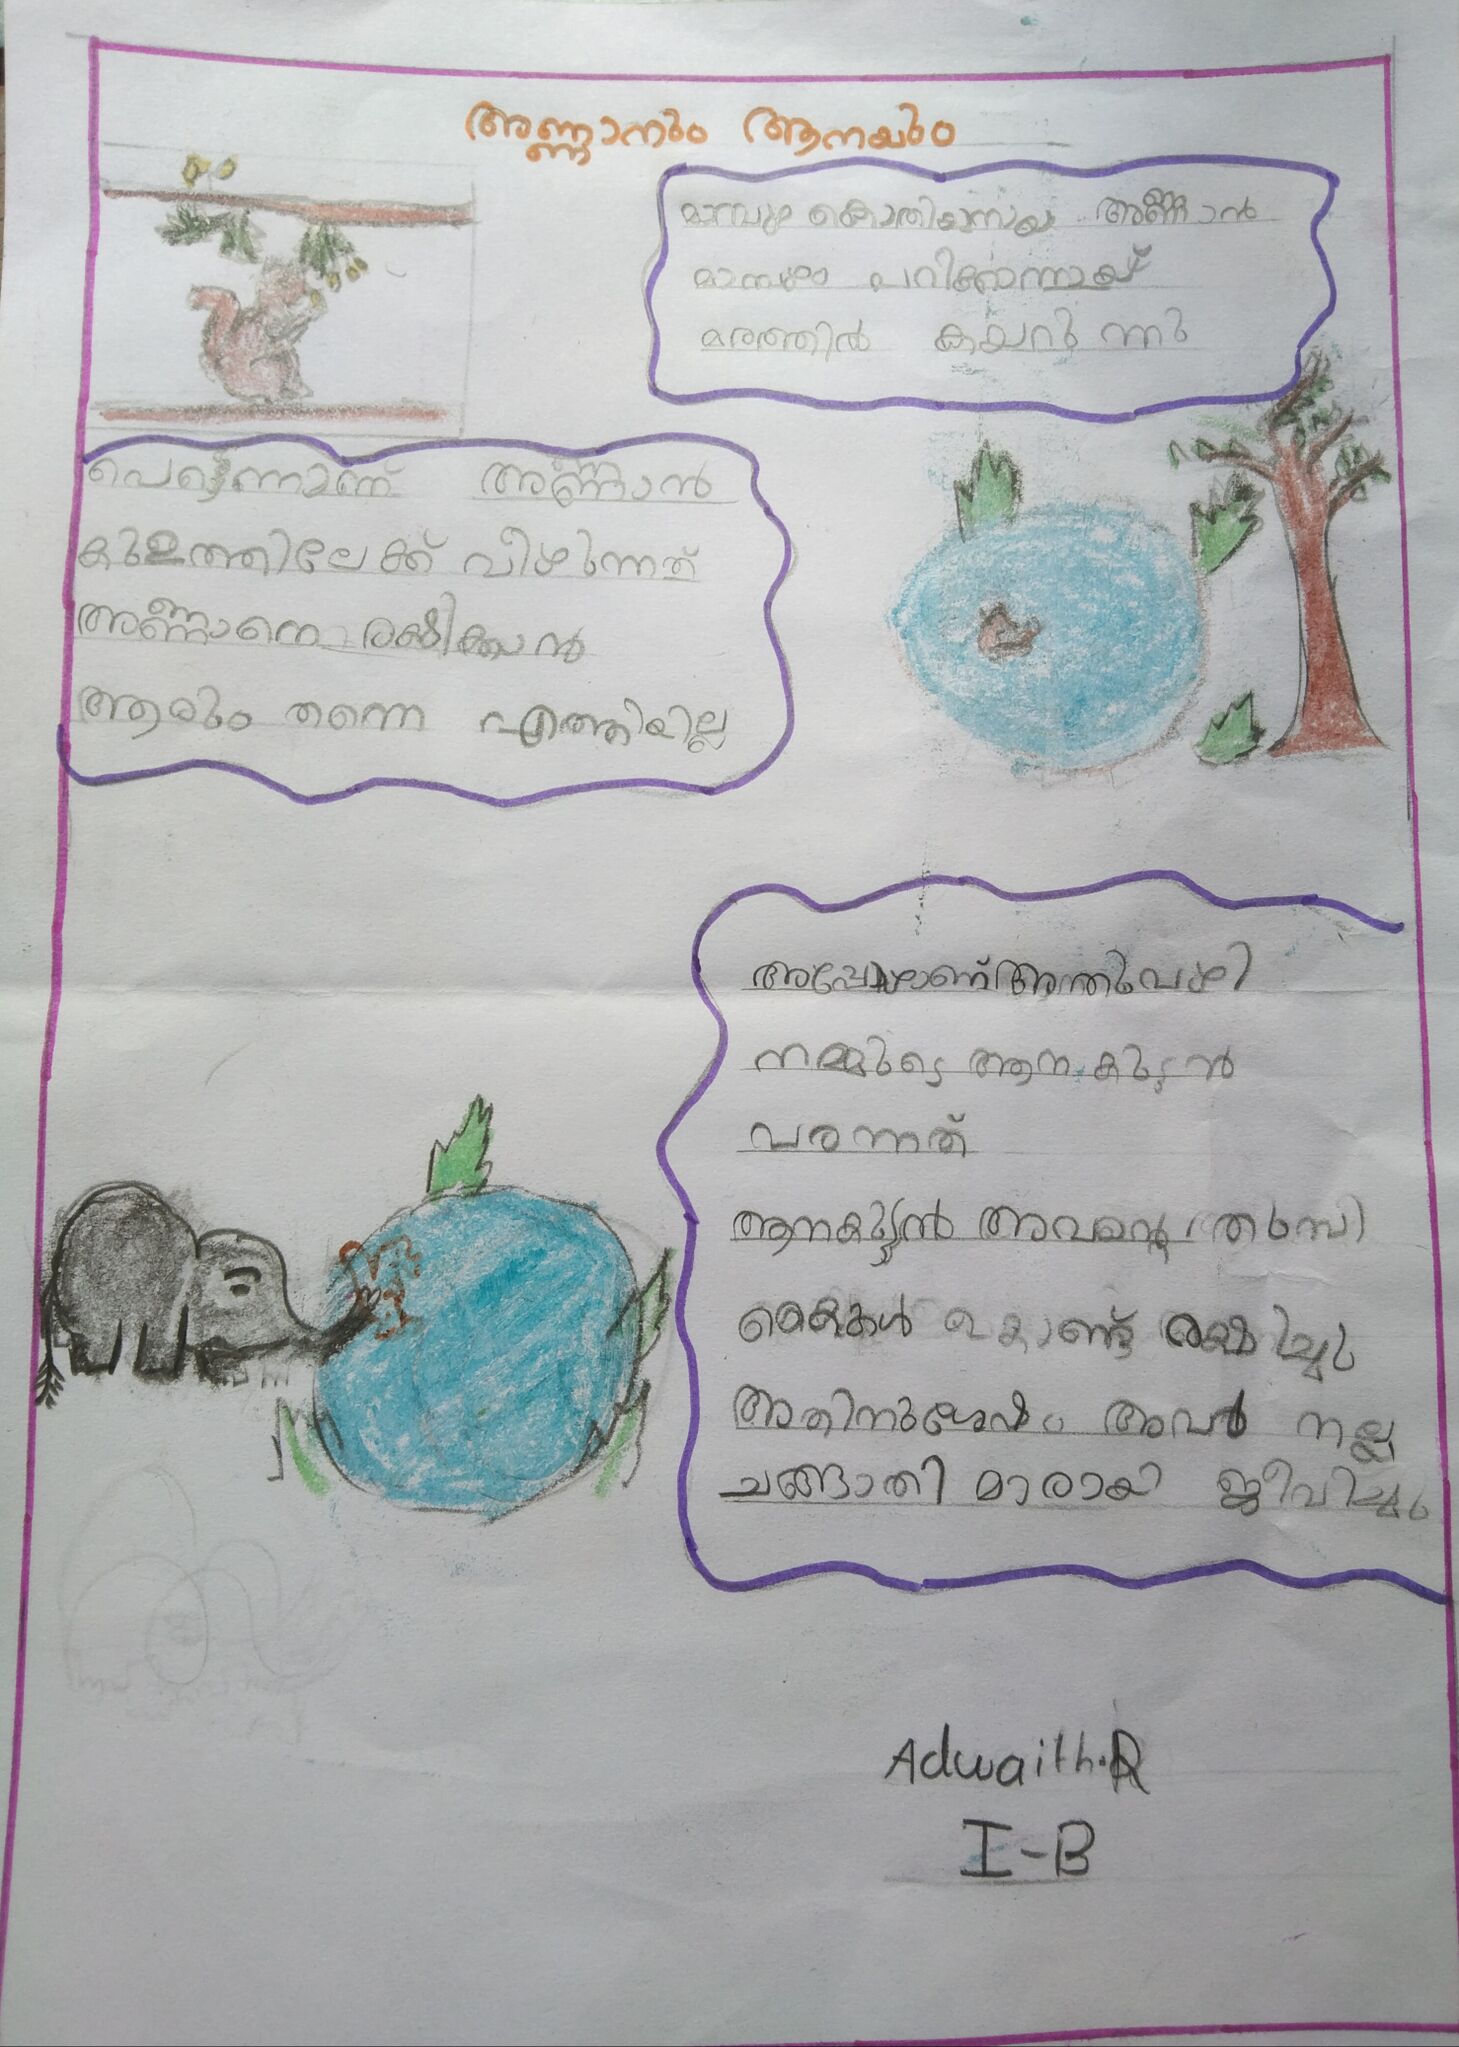 അണ്ണാനും ആനയും
മാമ്പഴ കൊതിയനായ അണ്ണാൻ
മാമ്പഴം പറിക്കാനായ്
മരത്തിൽ കയറു ന്നു
പെട്ടെന്നാണ് അണ്ണാൻ
കുളത്തിലേക്ക് വീഴുന്നത്
അണ്ണാനെ രക്ഷിക്കാൻ
ആരും തന്നെ എത്തിയില്ല
അപ്പോഴാണ് അതുവഴി
നമ്മുടെ ആന കുട്ടൻ
വരുന്നത്
ആനകുട്ടൻ അവന്റെ തുമ്പി
കൈകൾ കൊണ്ട് രക്ഷിച്ചു
അതിനുശേഷം അവർ നല്ല
ചങ്ങാതി മാരായി ജീവിച്ചു
Adwaith.R
I-B